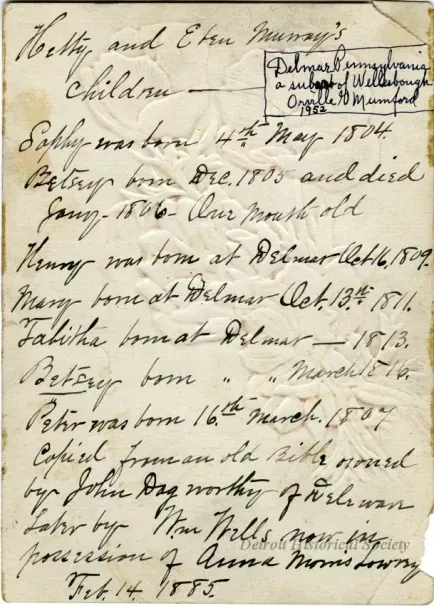 Hetty and Eben Murray's
Children —
Delmar Pennsylvania
a suburb of Wellesbough
Orville D Mumford
1952
Sophy was born 4th May 1804.
Betsey born Dec. 1805 and died
Jany - 1806 - One Month old
Henry was born at Delmar Oct 16, 1809.
Mary born at Delmar Oct. 13th 1811.
Tabitha born at Delmar — 1813.
Betsey born " " March 1816.
Peter was born 16th March. 1807
Copied from an old Bible owned
by John Dagworthy of Deleware
Later by Wm Wells now in
possession of Anna Morris Lowry
Feb. 14. 1885.
Detroit Historical Society